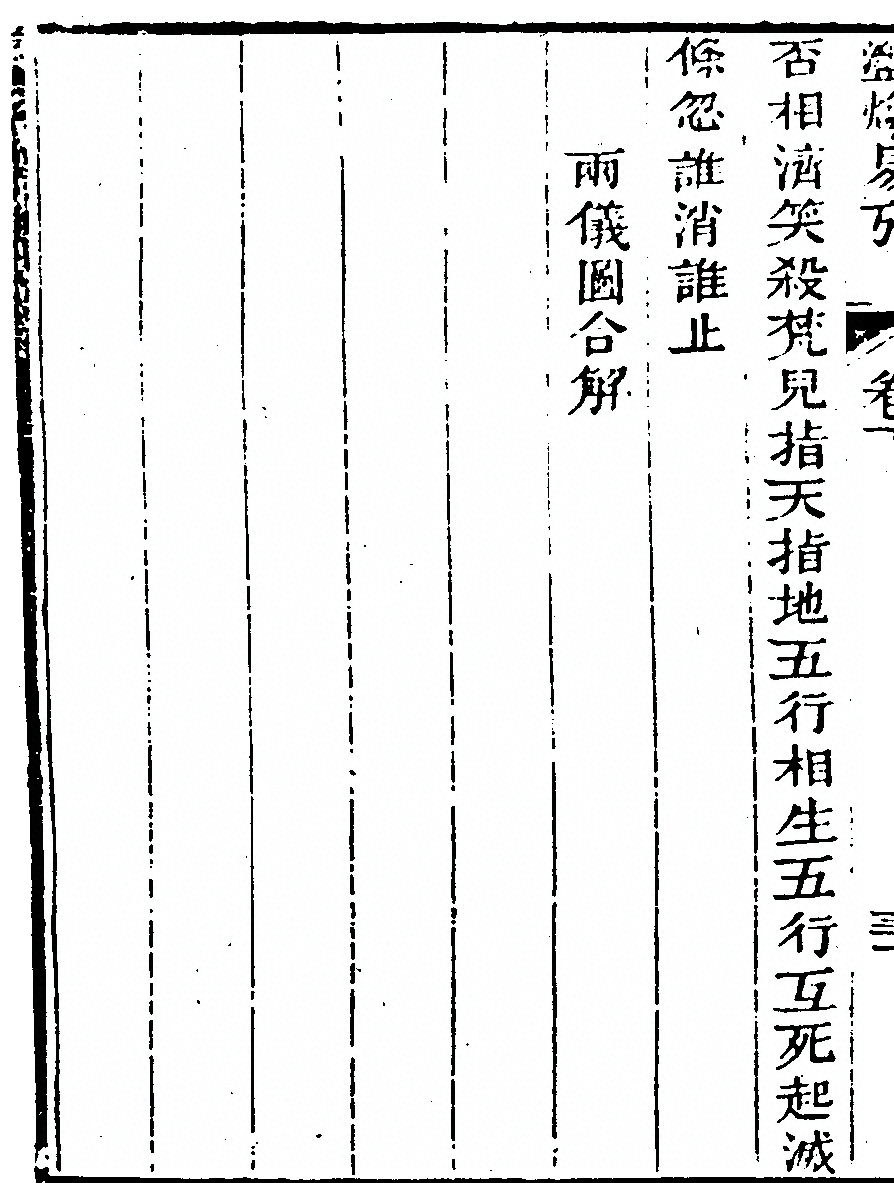 否相濟笑殺梵兒指天指地五行相生五行互死起滅
條忽誰消誰止
兩儀圖合解